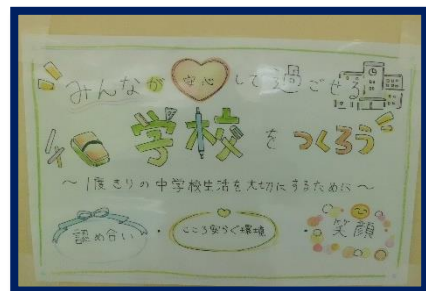 みんなが安心して過ごせる
学校をつくろう
～1度きりの中学校生活を大切にするために～
認め合い・こころ安らぐ環境・笑顔